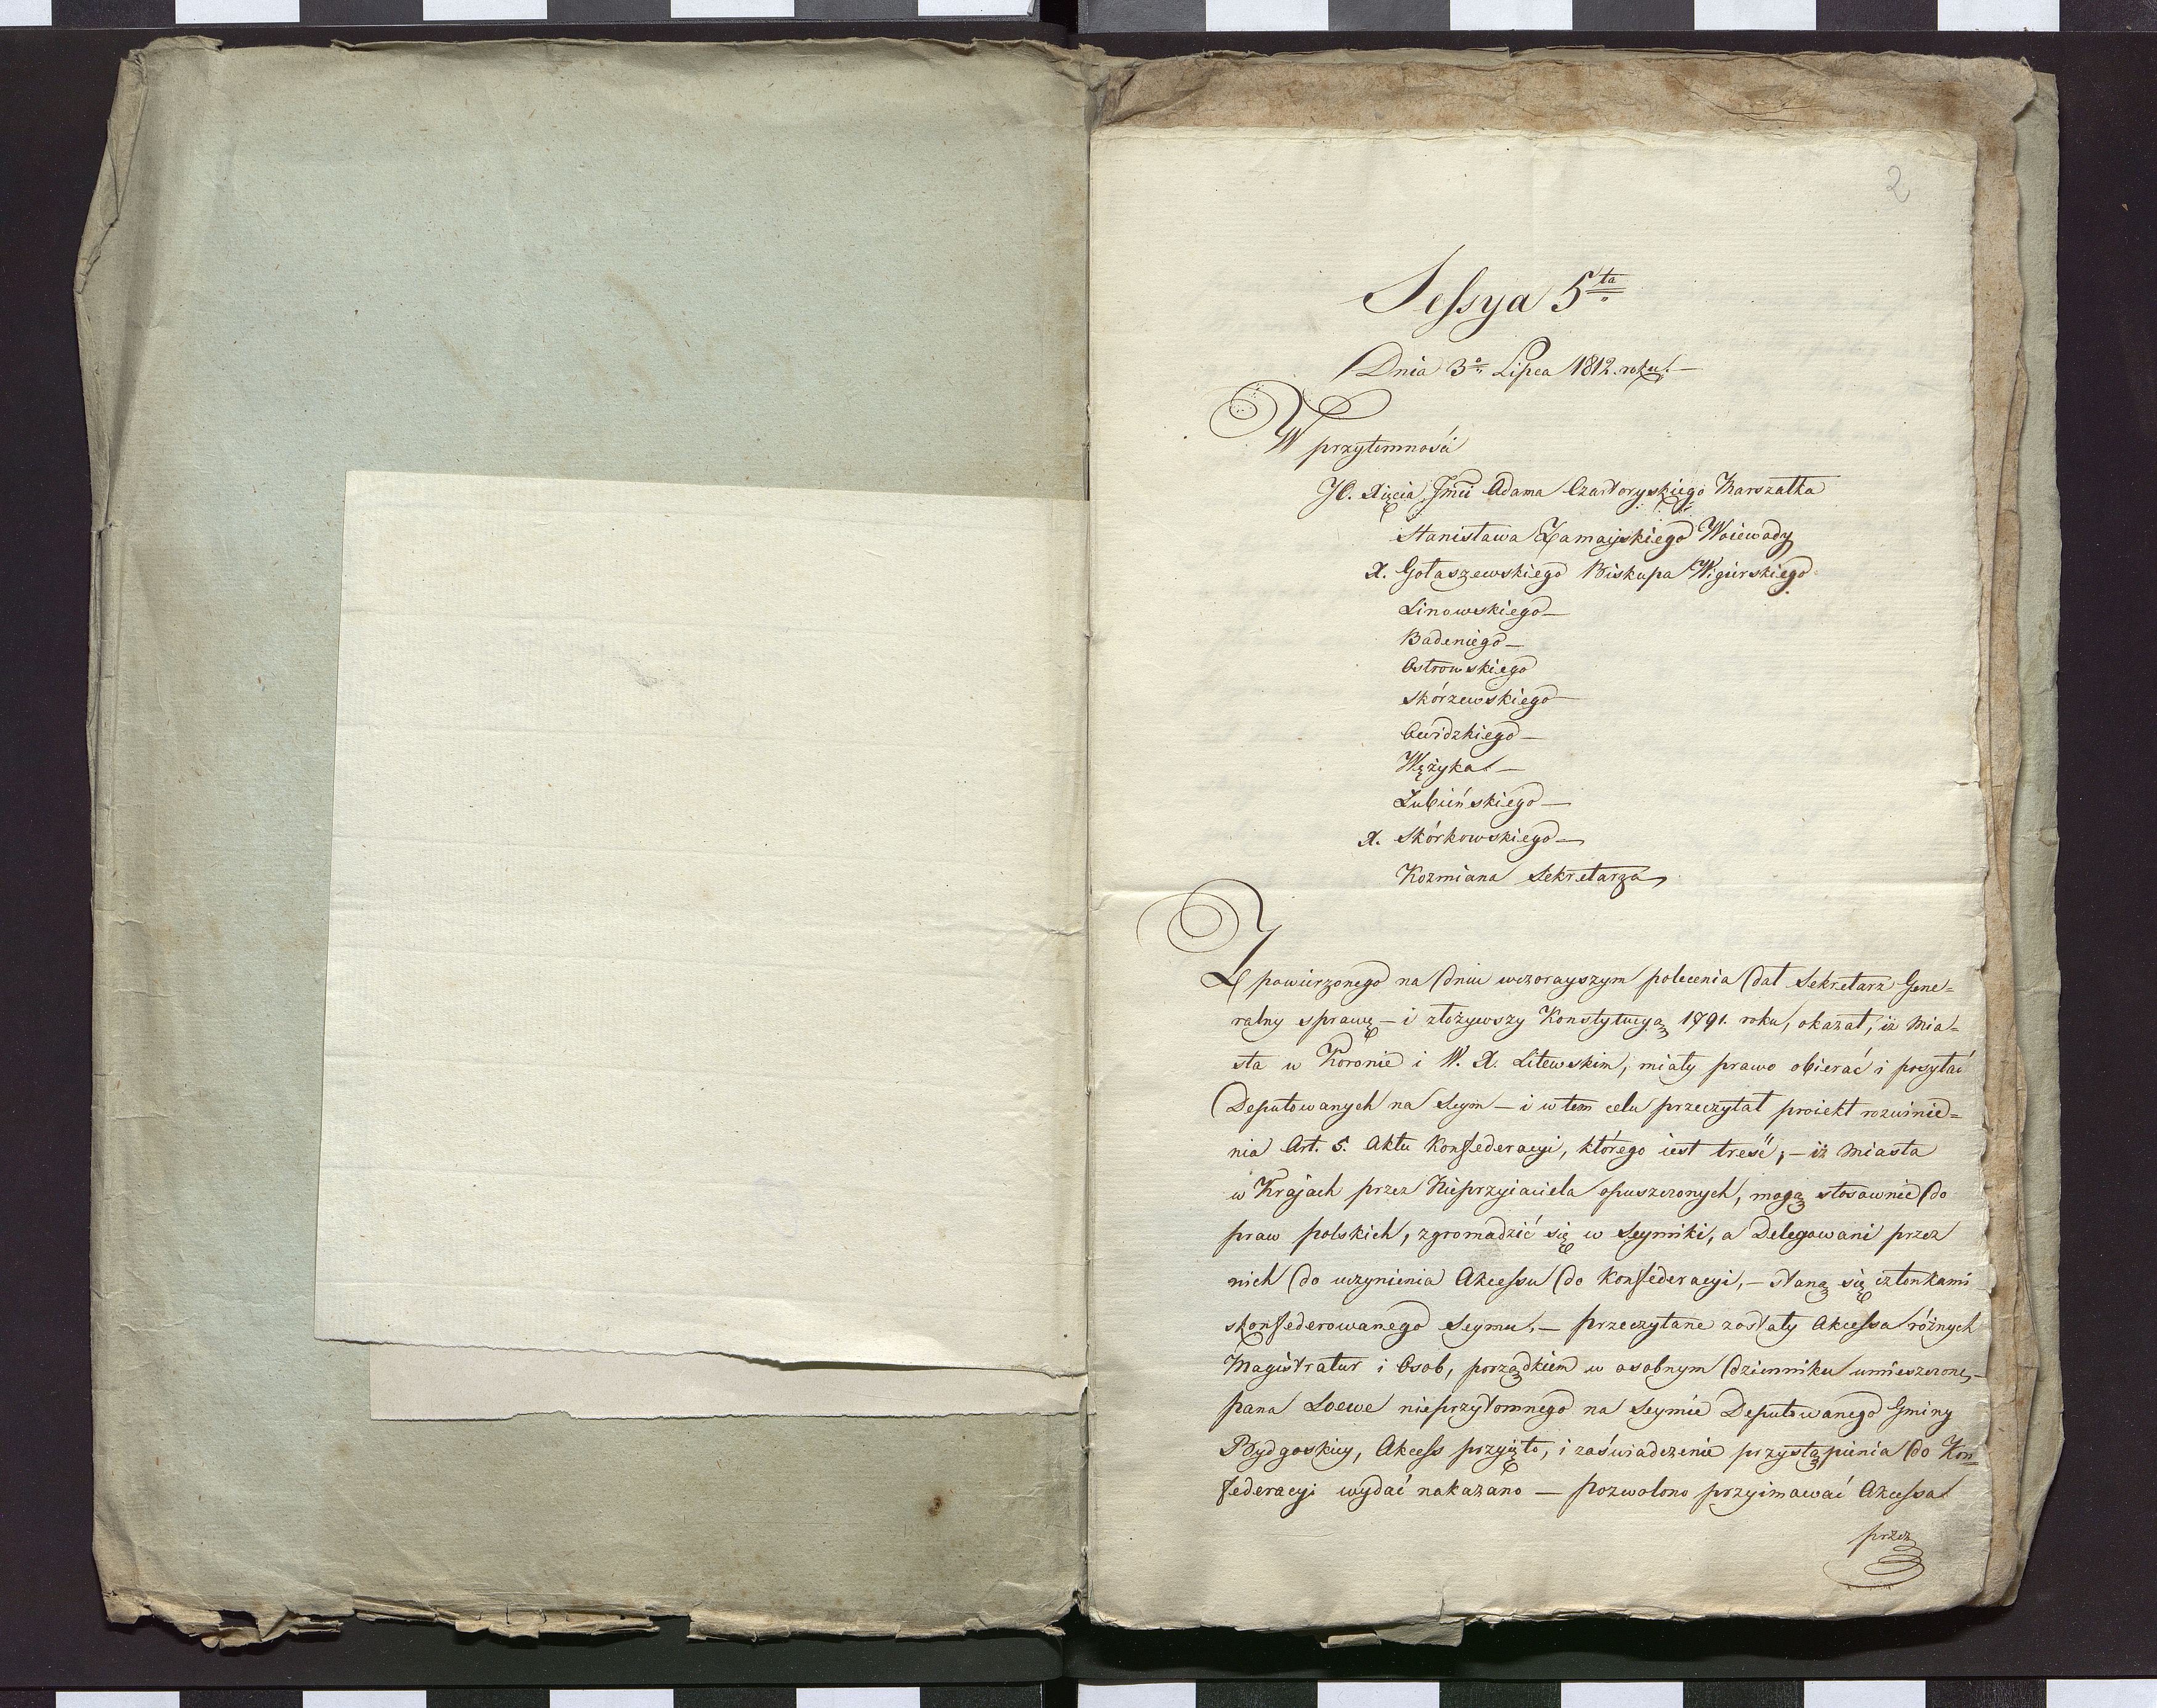 2
Sessya 5ta
Dnia 3o Lipca 1812. roku. —
W przytomności
JO. Xięcia Jmci Adama Czartoryskiego Marszałka
Stanisława Zamoyskiego Woiewody
X. Gołaszewskiego Biskupa Wigierskiego
Linowskiego —
Badeniego —
Ostrowskiego
Skórzewskiego
Gwidzkiego —
Wężyka —
Łubieńskiego —
X. Skórkowskiego —
Kozmiana Sekretarza
Z powierzonego na dniu wczorayszym polecenia dał Sekretarz Gene=
ralny sprawę — i złożywszy Konstytucyą 1791. roku, okazał, iż Mia=
sta w Koronie i W. X. Litewskim, miały prawo obierać i posyłać
Deputowanych na Seym — i w tem celu przeczytał proiekt rozwinie=
nia Art. 5. Aktu Konfederacyi, którego iest treść, — iż Miasta
w Krajach przez Nieprzyiaciela opuszczonych, mogą stosownie do
praw polskich, zgromadzić się w Seymiki, a Delegowani przez
nich do uczynienia Akcessu do Konfederacyi, — staną się członkami
skonfederowanego Seymu. — przeczytane zostały Akcessa różnych
Magistratur i Osob, porządkiem w osobnym dzienniku umieszczone, —
pana Loewe nieprzytomnego na Seymie Deputowanego Gminy
Bydgoskiey, Akcess przyięto, i zaświadczenie przystąpienia do Kon=
federacyi wydać nakazano — pozwolono przyimować Akcessa
przez